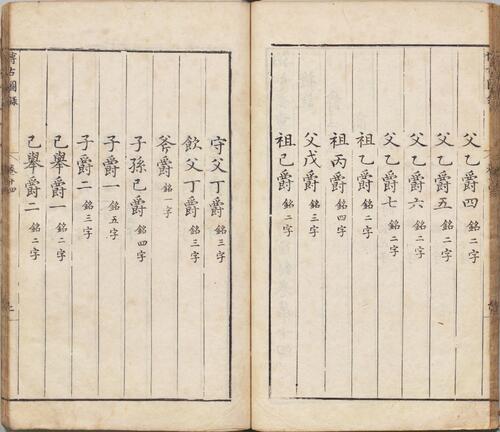 父乙爵四 銘二字
父乙爵五 銘二字
父乙爵六 銘二字
父乙爵七 銘二字
祖乙爵 銘二字
祖丙爵 銘四字
父戊爵 銘三字
祖己爵 銘二字
守父丁爵 銘三字
飲父丁爵 銘三字
斧爵 銘一字
子孫己爵 銘四字
子爵一 銘五字
子爵二 銘三字
己舉爵一 銘二字
己舉爵二 銘二字
博古圖錄 卷十四